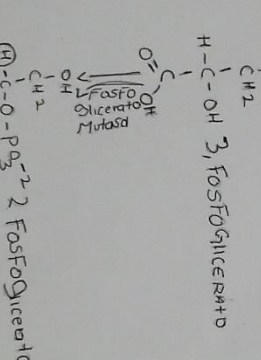 CH2
H-C-OH 3, FOSFOGLICERATO
O=C-OH
2 FOSFO
glicerato
Mutasa
OH
CH2
H-C-O-PO3-2 2 FOSFOglicerato